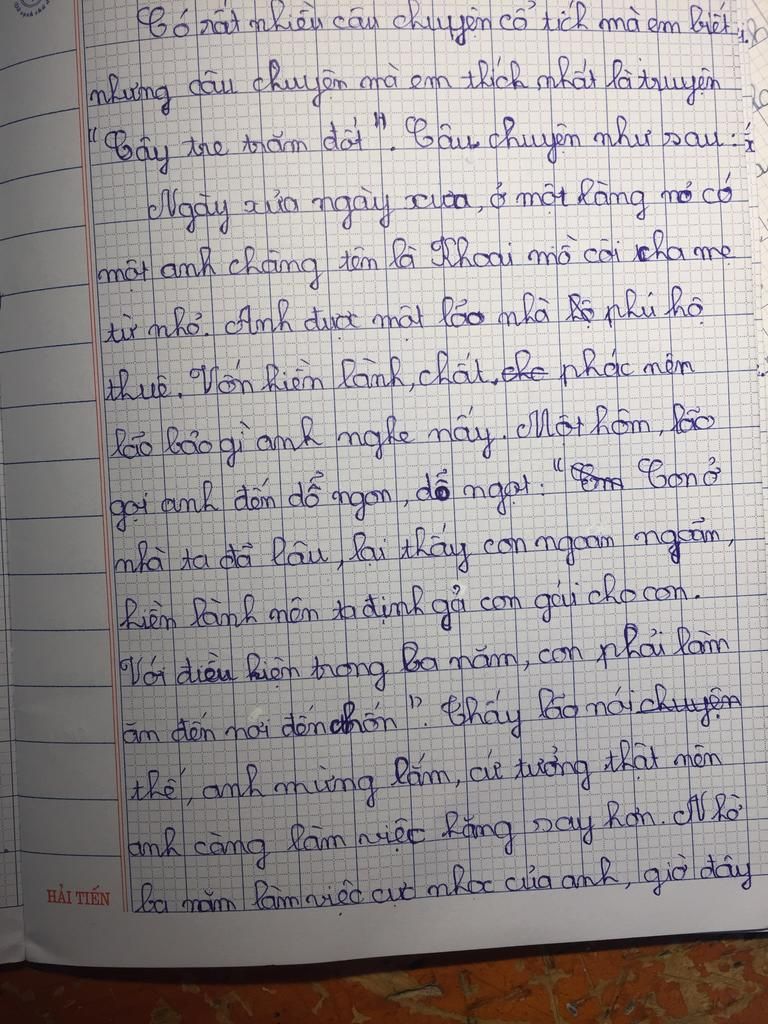 Có rất nhiều câu chuyện cổ tích mà em biết,
nhưng câu chuyện mà em thích nhất là truyện
"Cây tre trăm đốt". Câu chuyện như sau:
Ngày xửa ngày xưa, ở một làng nọ có
một anh chàng tên là Khoai mồ côi cha mẹ
từ nhỏ. Anh được một lão nhà phú hộ
thuê. Vốn hiền lành, chất phác nên
lão bảo gì anh nghe nấy. Một hôm, lão
gọi anh đến dỗ ngon, dỗ ngọt: "Con ở
nhà ta đã lâu, lại thấy con ngoan ngoãn,
hiền lành nên ta định gả con gái cho con.
Với điều kiện trong ba năm, con phải làm
ăn đến nơi đến chốn". Thấy lão nói
thế, anh mừng lắm, cứ tưởng thật nên
anh càng làm việc hăng say hơn. Nhờ
ba năm làm việc cực nhọc của anh, giờ đây
HẢI TIẾN